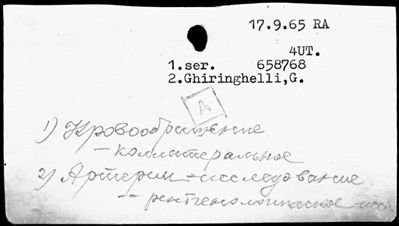 17.9.65 RA
4UT.
1.ser. 658768
2.Ghiringhelli,G.
А
1) Кровообращение
– коллатеральное
2) Артерии – исследование
– рентгенологическое иссл.